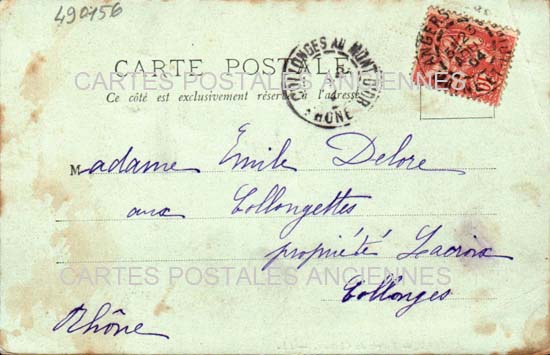 490156
CARTE POSTALE
Ce côté est exclusivement réservé à l'adresse
COLLONGES AU MONT D'OR
RHÔNE
ANGERS
CARTES POSTALES ANCIENNES
Madame Emile Delore
aux Collongettes
propriété Lacroix
CARTES POSTALES ANCIENNES
Collonges
Rhône